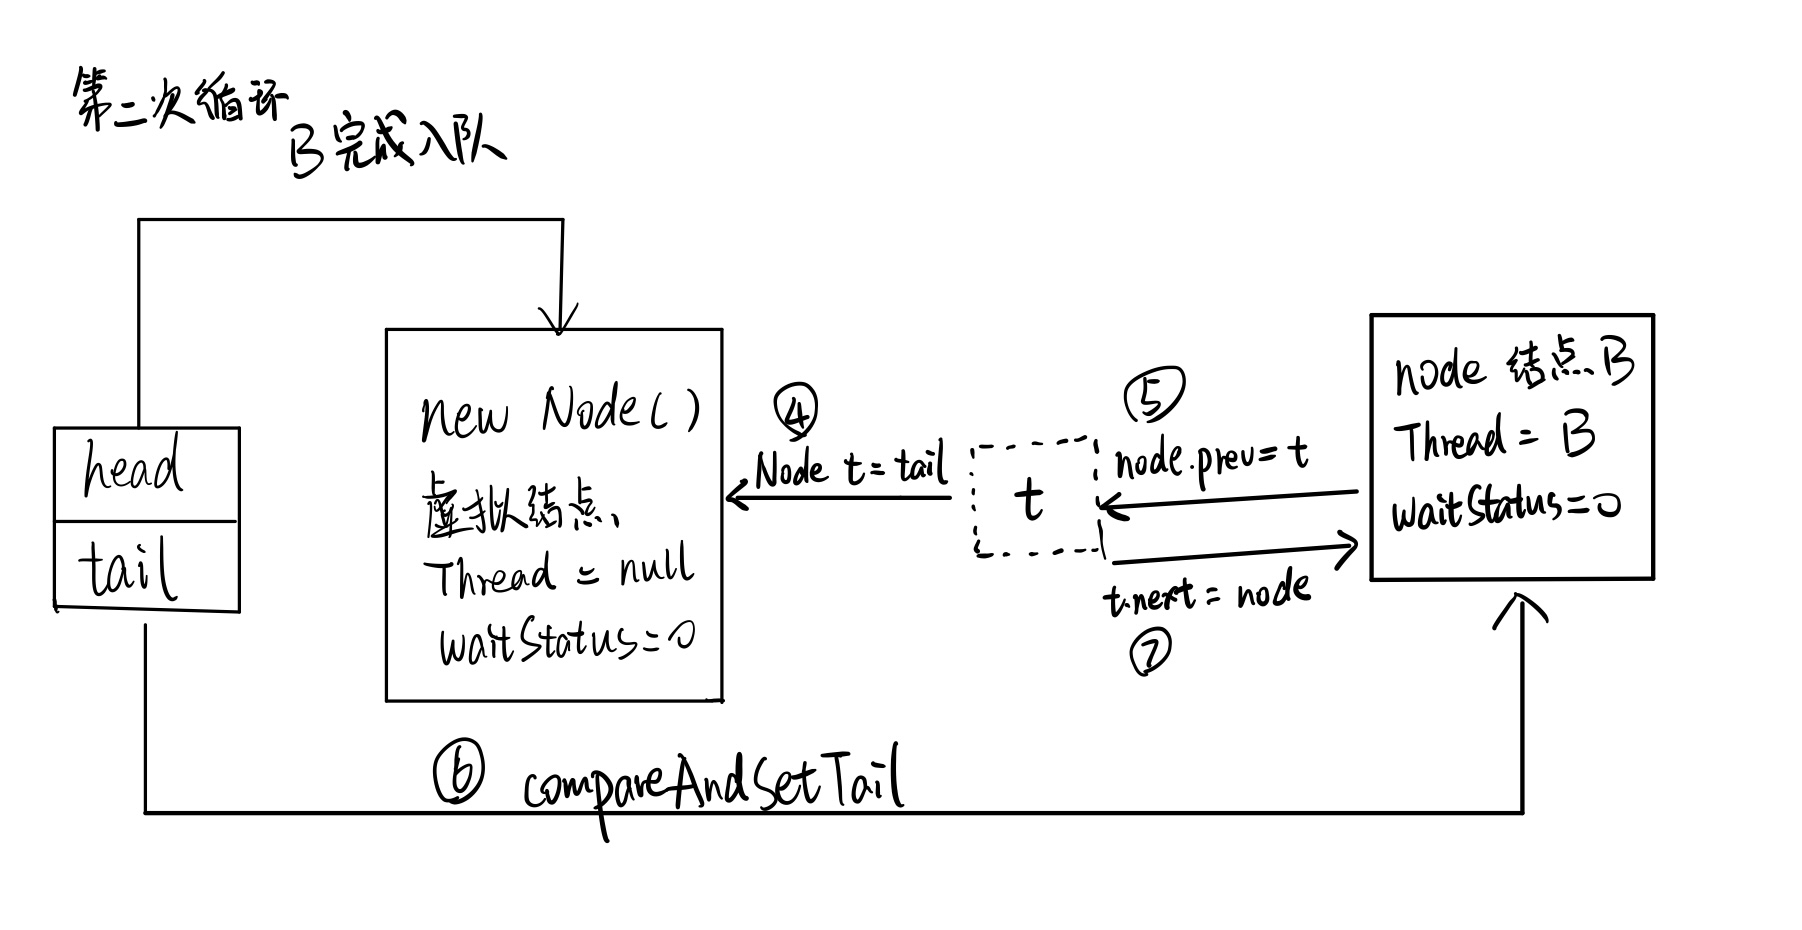 第二次循环
B完成入队
head
tail
new Node()
虚拟结点
Thread = null
waitStatus=0
④
Node t=tail
t
⑤
node.prev=t
t.next=node
⑦
node 结点B
Thread = B
waitStatus=0
⑥ compareAndSetTail